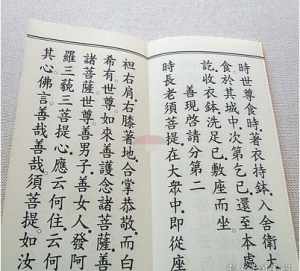 時世尊食時著衣持鉢入舍衛大
食於其城中次第乞已還至本處
訖收衣鉢洗足已敷座而坐
善現啓請分第二
時長老須菩提在大衆中即從座
袒右肩右膝著地合掌恭敬而白
希有世尊如來善護念諸菩薩善
諸菩薩世尊善男子善女人發阿
羅三藐三菩提心應云何住云何
其心佛言善哉善哉須菩提如汝